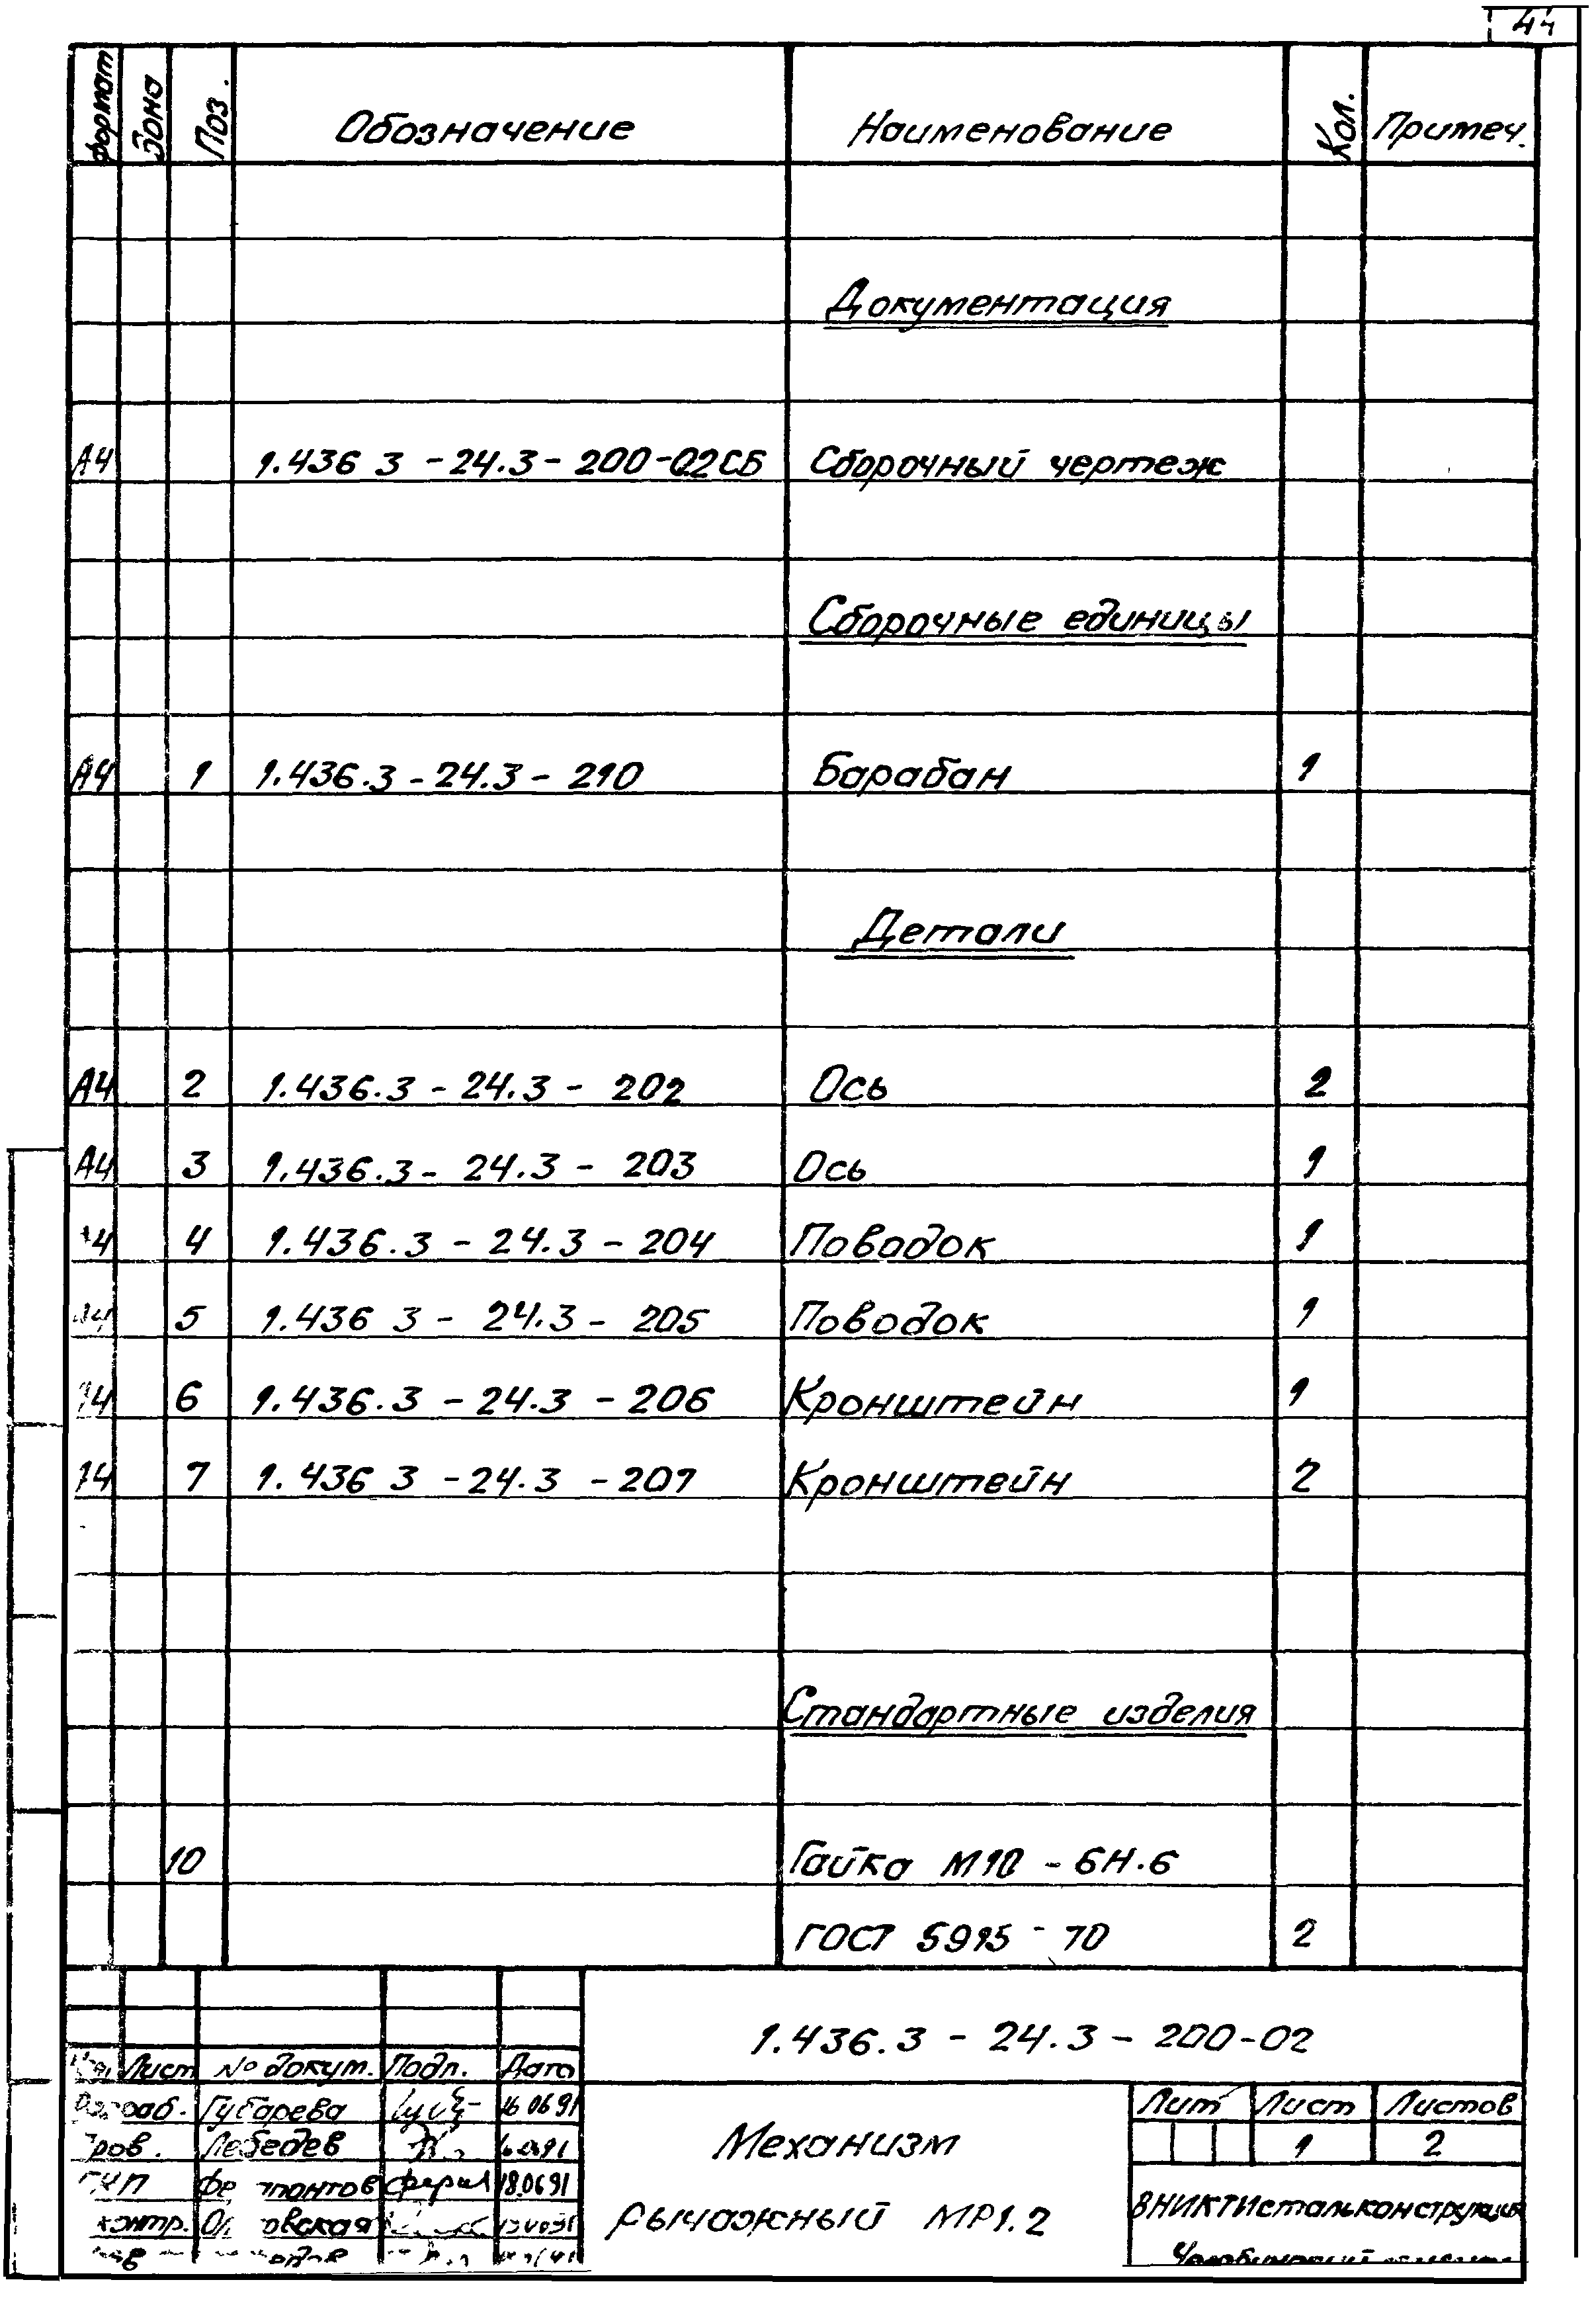 44
Формат Зона Поз. Обозначение Наименование Кол. Примеч.
Документация
А4 1.436 3 - 24.3 - 200-02СБ Сборочный чертеж
Сборочные единицы
А4 1 1.436.3 - 24.3 - 210 Барабан 1
Детали
А4 2 1.436.3 - 24.3 - 202 Ось 2
А4 3 1.436.3 - 24.3 - 203 Ось 1
А4 4 1.436.3 - 24.3 - 204 Поводок 1
А4 5 1.436 3 - 24.3 - 205 Поводок 1
А4 6 1.436.3 - 24.3 - 206 Кронштейн 1
А4 7 1.436 3 - 24.3 - 207 Кронштейн 2
Стандартные изделия
10 Гайка М10 - 6Н.6
ГОСТ 5915 - 70 2
1.436.3 - 24.3 - 200-02
Лист № докум. Подп. Дата
Разраб. Губарева 16.06.91
Пров. Лебедев
ГИП 18.06.91
контр.
Механизм
рычажный МР1.2
Лит Лист Листов
1 2
ВНИКТИстальконструкция